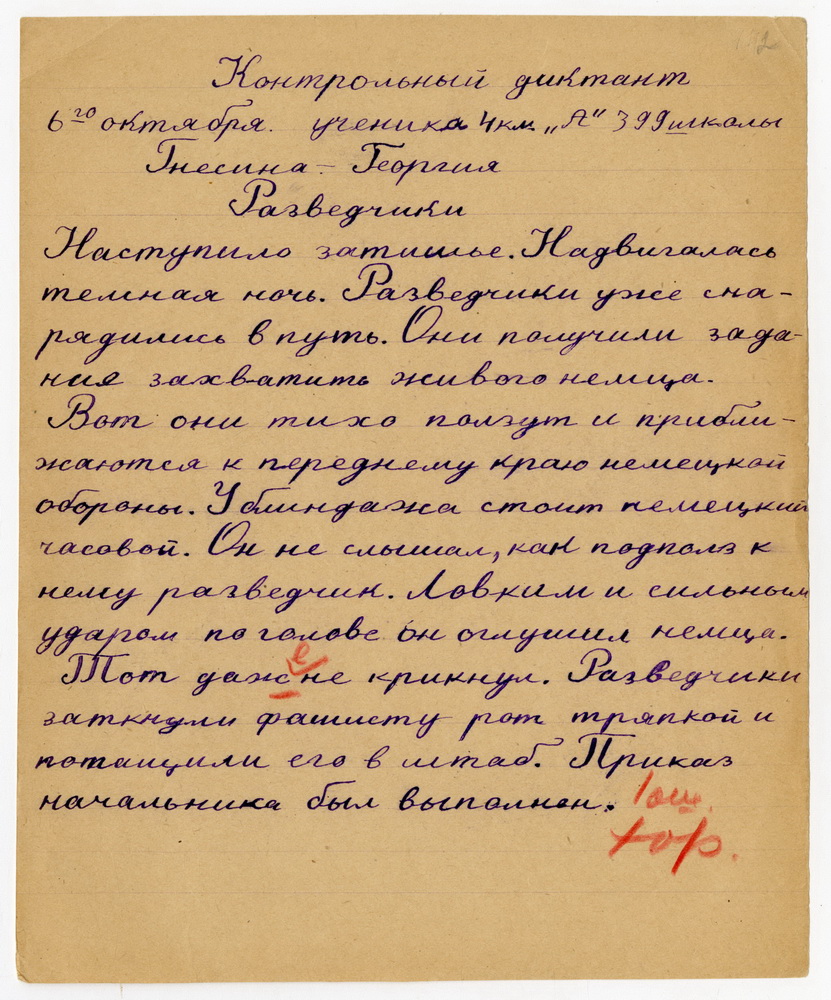 2
Контрольный диктант
6го октября. ученика 4 кл. „А" 399 школы
Гнесина - Георгия
Разведчики
Наступило затишье. Надвигалась
темная ночь. Разведчики уже сна-
рядились в путь. Они получили зада-
ние захватить живого немца.
Вот они тихо ползут и прибли-
жаются к переднему краю немецкой
обороны. У блиндажа стоит немецкий
часовой. Он не слышал, как подполз к
нему разведчик. Ловким и сильным
ударом по голове он оглушил немца.
е
Тот даж не крикнул. Разведчики
заткнули фашисту рот тряпкой и
потащили его в штаб. Приказ
начальника был выполнен.
1 ош.
хор.